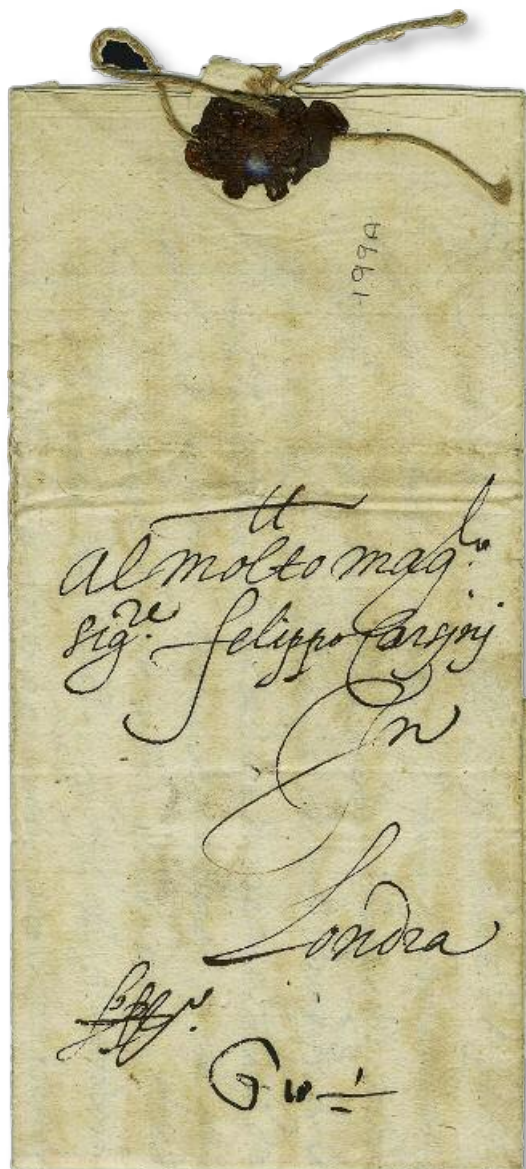 199A
Al molto mag.co
Sig.re Filippo Corsinj
In
Londra